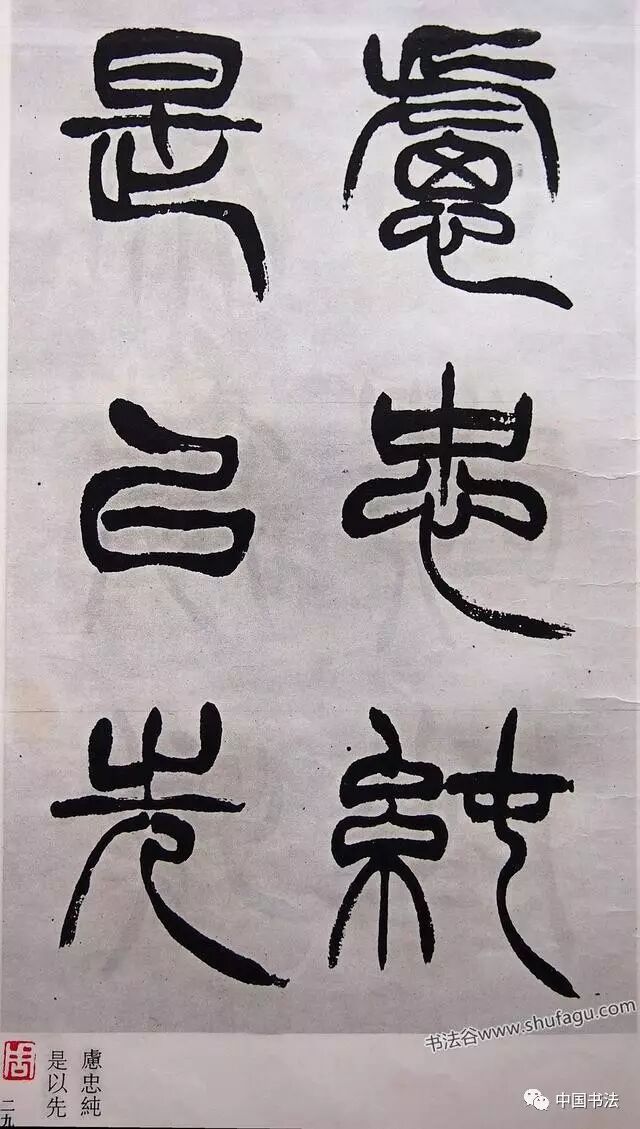 慮忠純
是以先
慮忠純
是以先
二九
书法谷www.shufagu.com
中国书法